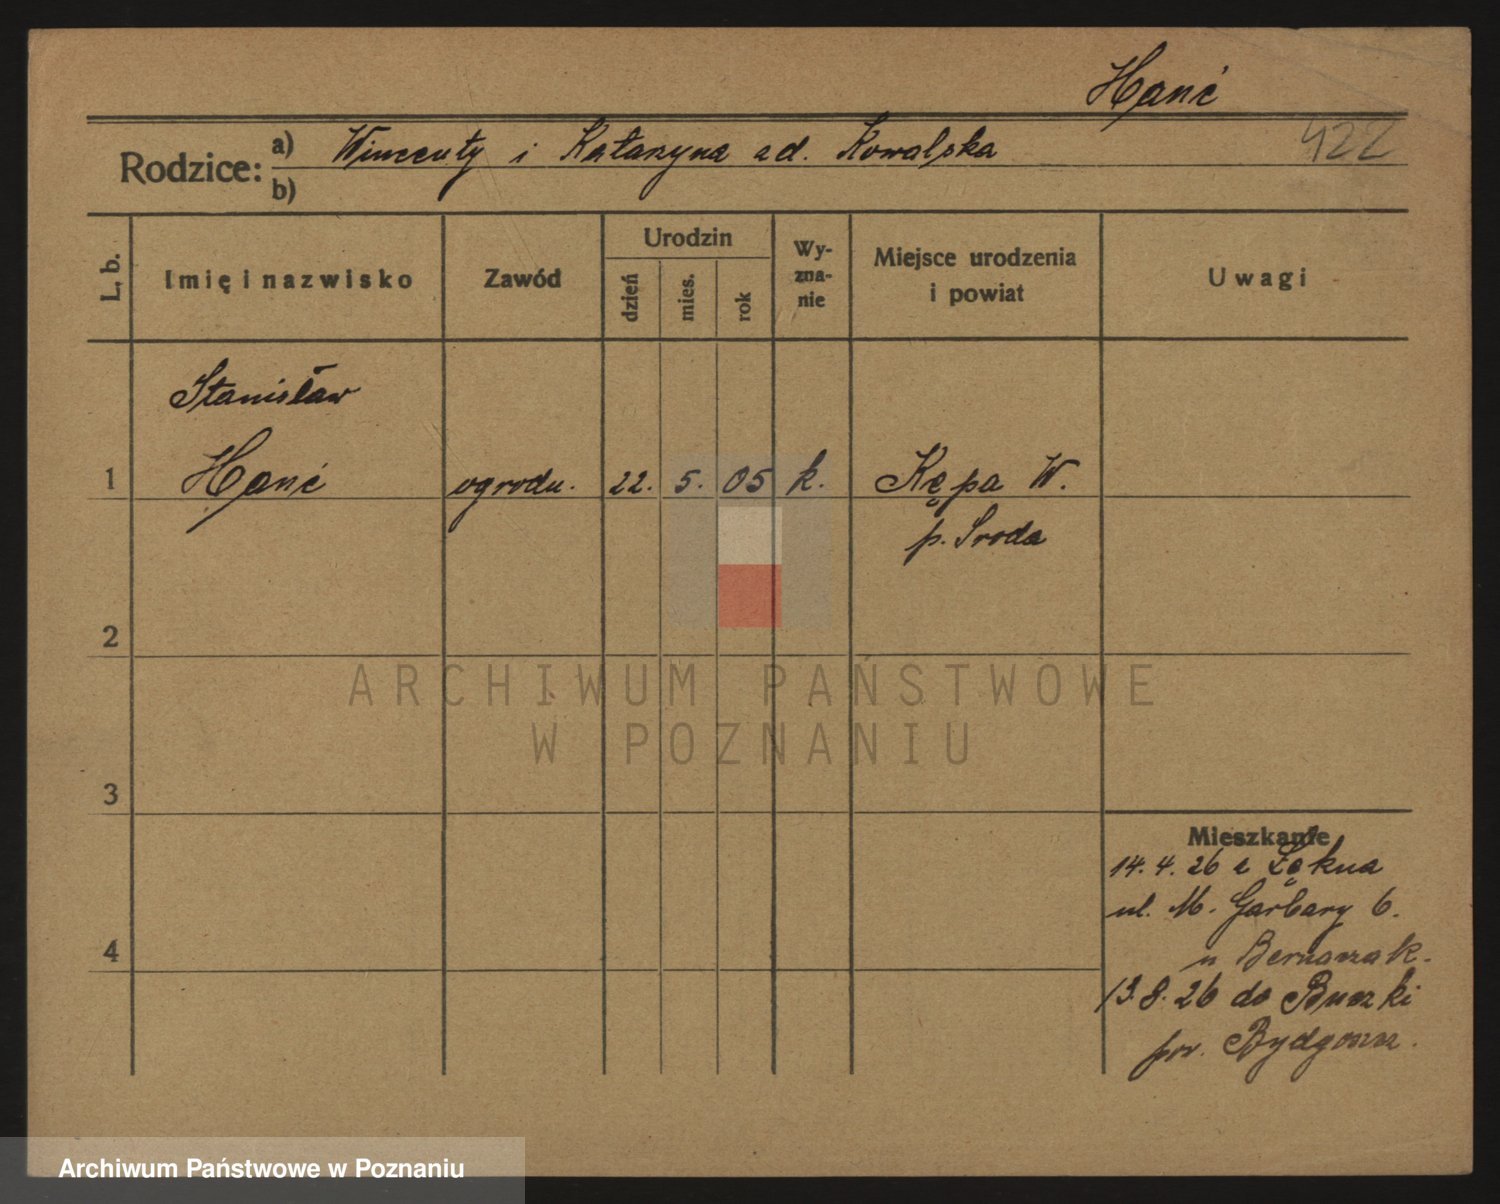 Hanć
422
Rodzice: a) Wincenty i Katarzyna zd. Kowalska
b)
L. b. Imię i nazwisko Zawód Urodzin dzień mies. rok Wyznanie Miejsce urodzenia i powiat Uwagi
Stanisław
1 Hanć ogrodn. 22. 5. 05 k. Kępa W.
p. Sroda
2
ARCHIWUM PAŃSTWOWE
W POZNANIU
3
Mieszkanie
14. 4. 26 z Łękna
ul. M. Garbary 6.
4 u Bernaszak.
13. 8. 26 do Buszki
pow. Bydgoszcz.
Archiwum Państwowe w Poznaniu